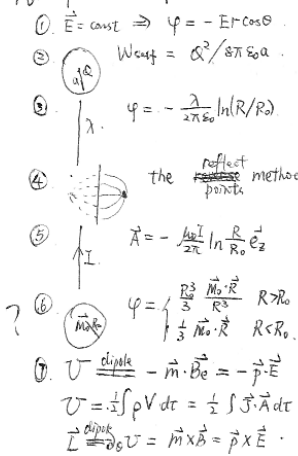 ① E⃗ = const ⇒ φ = - Er cosθ
② a Q W self = Q²/8πε₀a
③ λ φ = - λ/2πε₀ ln(R/R₀)
④ the reflect points method
⑤ I A⃗ = - μ₀I/2π ln R/R₀ e⃗z
? ⑥ M⃗₀ R₀ φ = { R₀³/3 M⃗₀·R⃗/R³ R>R₀
1/3 M⃗₀·R⃗ R<R₀.
⑦ U dipole = - m⃗·B⃗e = - p⃗·E⃗
U = ½∫ρVdτ = ½∫J⃗·A⃗dτ
L⃗ dipole = ∂θ U = m⃗×B⃗ = p⃗×E⃗.